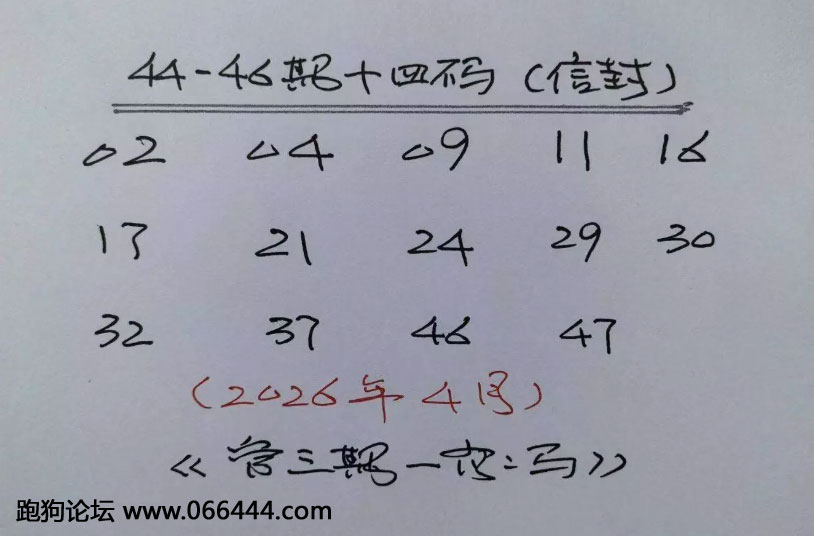 44-46期十四码（信封）
02 04 09 11 16
17 21 24 29 30
32 37 46 47
（2026年4月）
《管三期一
跑狗论坛 www.066444.com